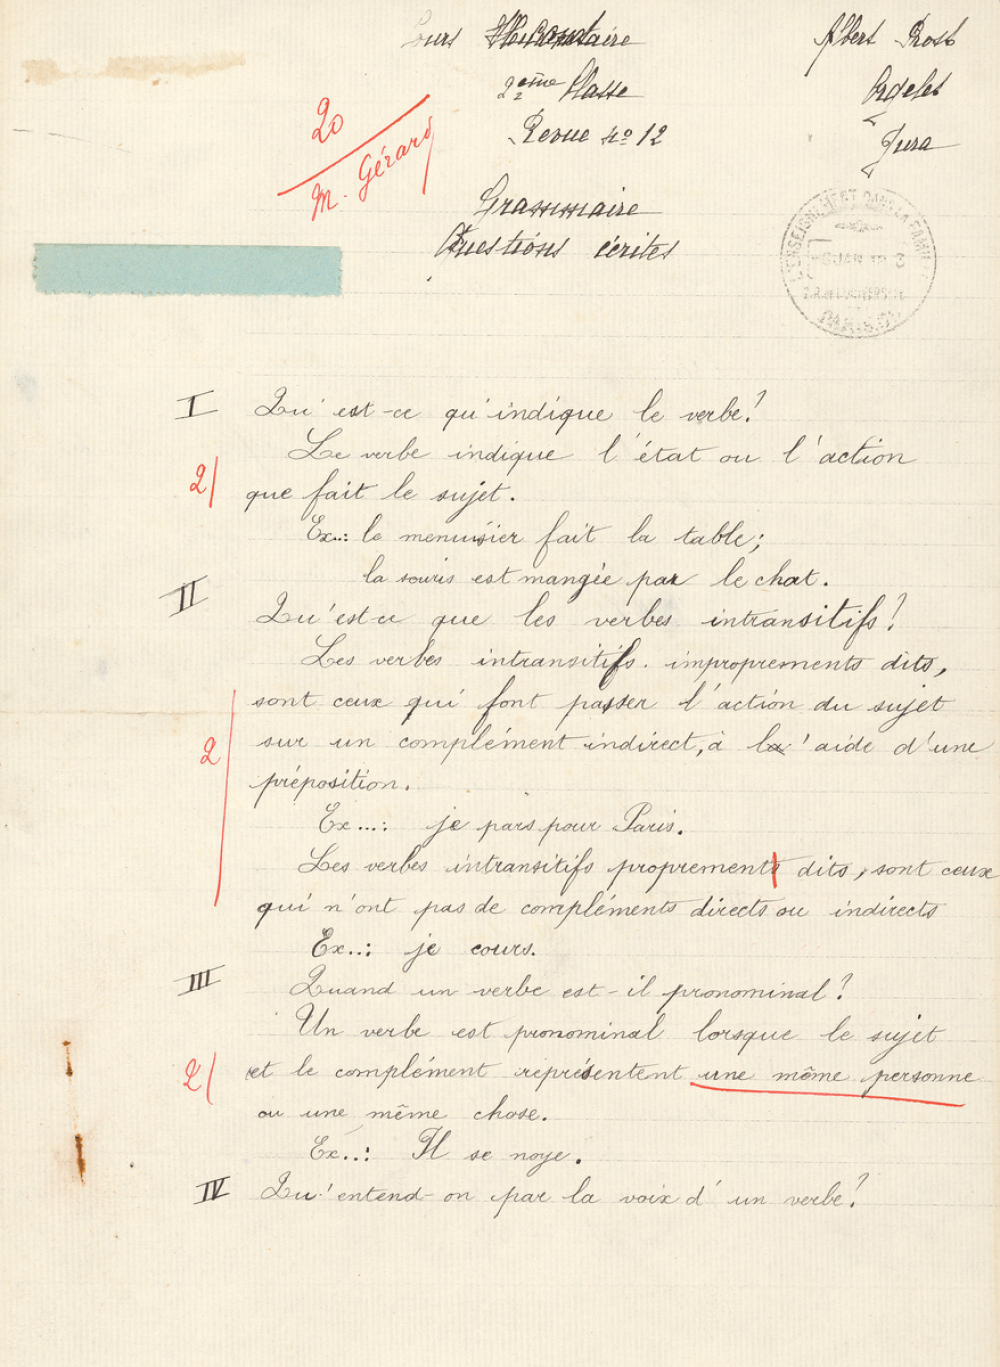 Cours Élémentaire
Albert Prost
2ème Classe
Orgelet
Revue nº 12
Jura
20
M. Gérard
Grammaire
Questions écrites
L'ENSEIGNEMENT DANS LA FAMILLE
JAN
PARIS
I Qu'est-ce qu'indique le verbe?
Le verbe indique l'état ou l'action
2
que fait le sujet.
Ex..: le menuisier fait la table;
la souris est mangée par le chat.
II Qu'est-ce que les verbes intransitifs?
Les verbes intransitifs. improprements dits,
sont ceux qui font passer l'action du sujet
2
sur un complément indirect, à la 'aide d'une
préposition.
Ex...: je pars pour Paris.
Les verbes intransitifs proprements dits, sont ceux
qui n'ont pas de compléments directs ou indirects
Ex..: je cours.
III Quand un verbe est-il pronominal?
Un verbe est pronominal lorsque le sujet
2
et le complément représentent une même personne
ou une même chose.
Ex..: Il se noye.
IV Qu'entend-on par la voix d'un verbe?